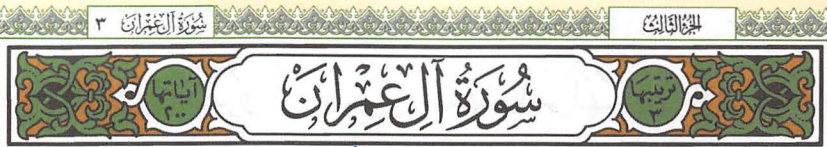 الجزء الثالث سورة آل عمران ٣
ترتيبها ٣ سُورَةُ آلِ عِمْرَانَ آياتها ٢٠٠